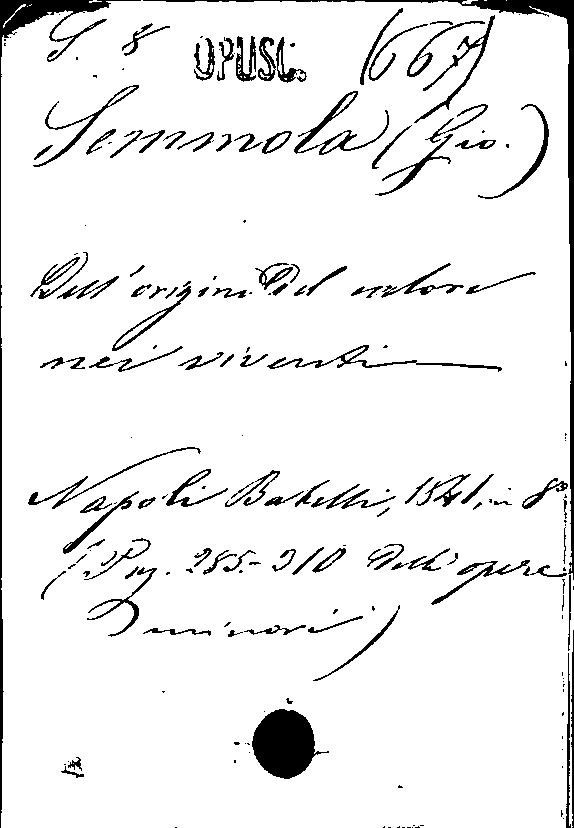 S. 8 OPUSC. (667)
Semmola (Gio.)
Dell'origine del calore
nei viventi
Napoli Batelli, 1841, in 8°
(Pag. 285-310 Dell' opere
minori)